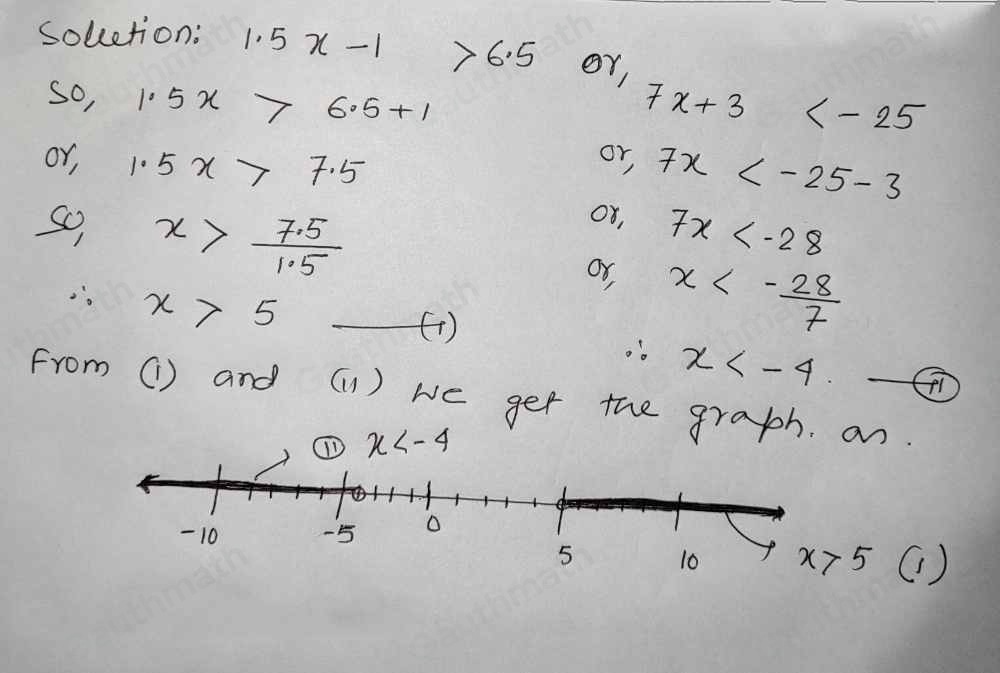 Solution: 1.5 x - 1 > 6.5 or, 7x + 3 < - 25
so, 1.5 x > 6.5 + 1
or, 7x < - 25 - 3
or, 1.5 x > 7.5
or, 7x < -28
so, x > 7.5/1.5
or, x < -28/7
∴ x > 5 —(i)
∴ x < -4. —(ii)
From (i) and (ii) we get the graph. as.
(ii) x < -4
-10 -5 0 5 10
x > 5 (i)